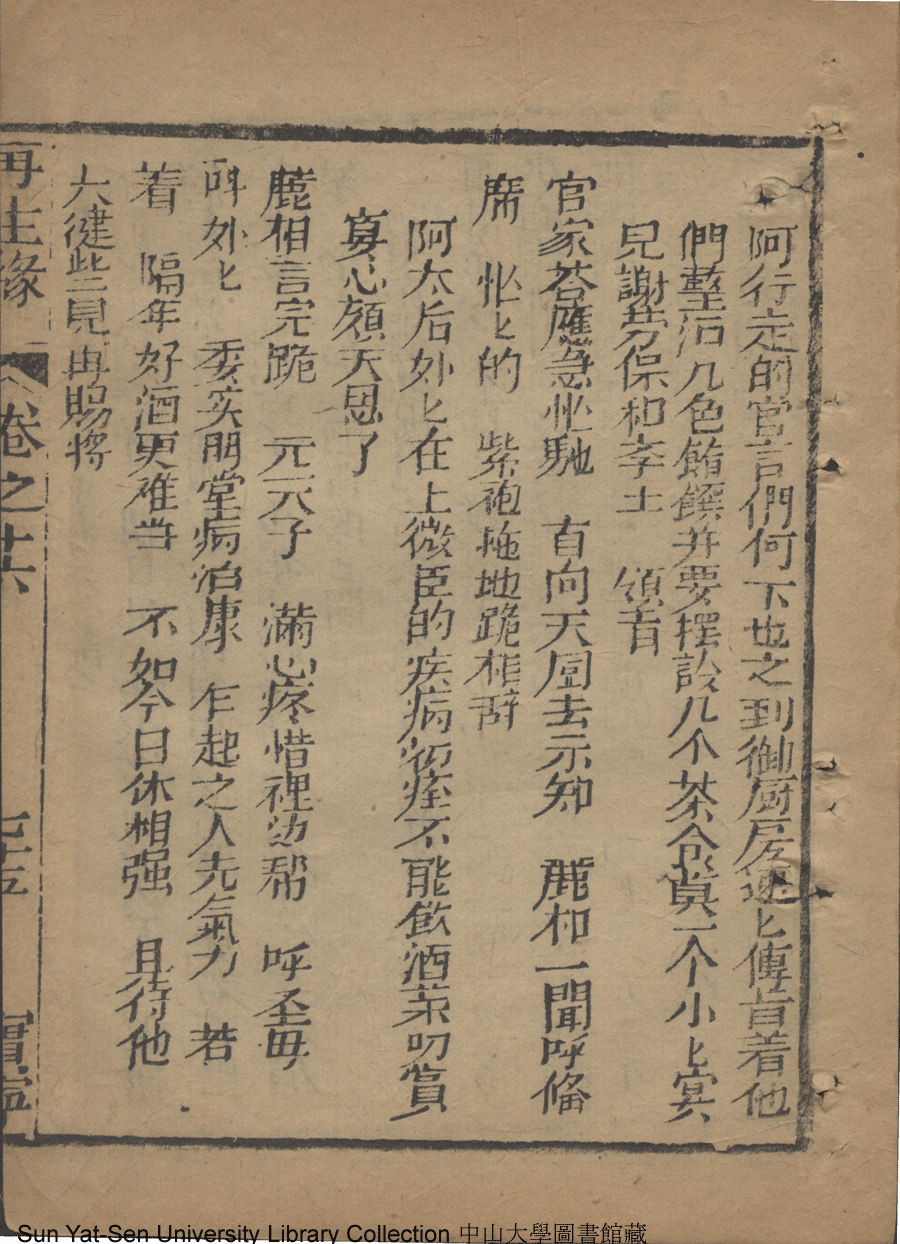 阿行走的官言們何下也之到御厨房速匕傳旨着他
們整治几色餚饌并要擺設几个茶合真一个小匕宴
兒謝劳保和李土　領旨
官家荅應急忙馳　直向天囬去示知　鹿和一聞呼偹
席　忙匕的　紫袍拖地跪相辞
阿太后外匕在上微臣的疾病初痊不能飲酒茶叨賞
宴心領天恩了
鹿相言完跪　元天子　滿心疼惜裡边帮　呼圣毋
呌外匕　委实朋堂病泊康　乍起之人先氣力　若
着　隔年好酒更难当　不如今日休相强　且待他
大徤些見再賜将
再生緣　卷之十六　七十五　寶寧
Sun Yat-Sen University Library Collection 中山大學圖書館藏